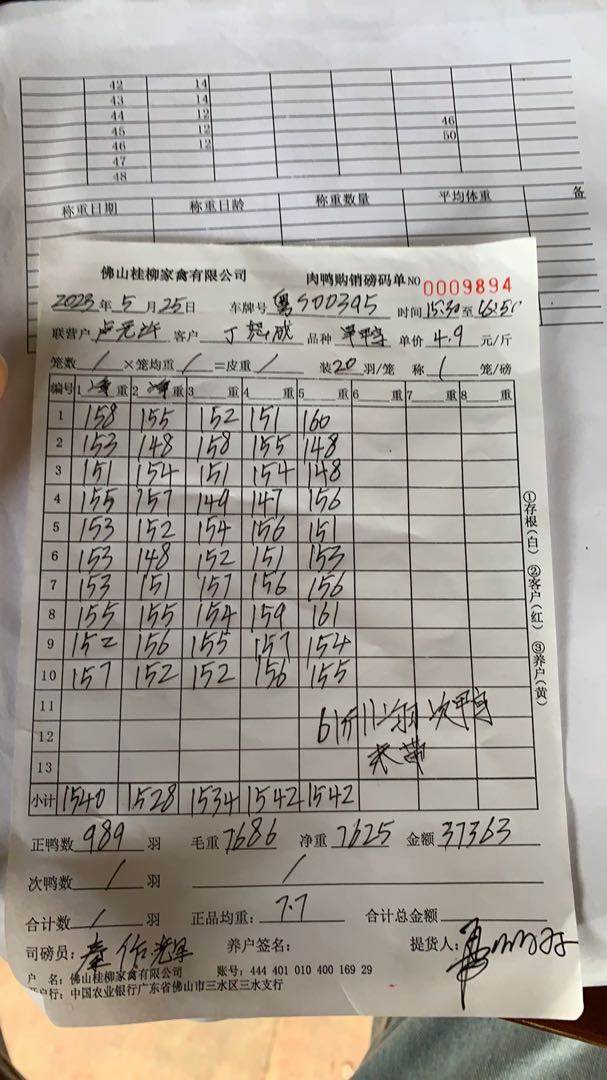 42 14
43 14
44 12
45 12 46
46 12 50
47
48
称重日期 称重日龄 称重数量 平均体重 备
佛山桂柳家禽有限公司 肉鸭购销磅码单 NO 0009894
2023年5月25日 车牌号 粤S00395 时间 15:30至16:50
联营户 客户 品种 单价 4.9 元/斤
笼数 / ×笼均重 / =皮重 / 装20羽/笼 称 1 笼/磅
编号 1 净重 2 净重 3 重 4 重 5 重 6 重 7 重 8 重
1 158 155 152 151 160
2 153 148 158 155 148
3 151 154 151 154 148
4 155 157 149 147 156
5 153 152 154 156 151
6 153 148 152 151 153
7 153 151 157 156 156
8 155 155 154 159 161
9 152 156 155 157 154
10 157 152 152 156 155
11
61斤11羽次鸭
12
未带
13
小计 1540 1528 1534 1542 1542
①存根(白) ②客户(红) ③养户(黄)
正鸭数 989 羽 毛重 7686 净重 7625 金额 37363
次鸭数 / 羽 /
合计数 / 羽 正品均重: 7.7 合计总金额
司磅员: 养户签名: 提货人:
户 名: 佛山桂柳家禽有限公司 账号: 444 401 010 400 169 29
户行: 中国农业银行广东省佛山市三水区三水支行